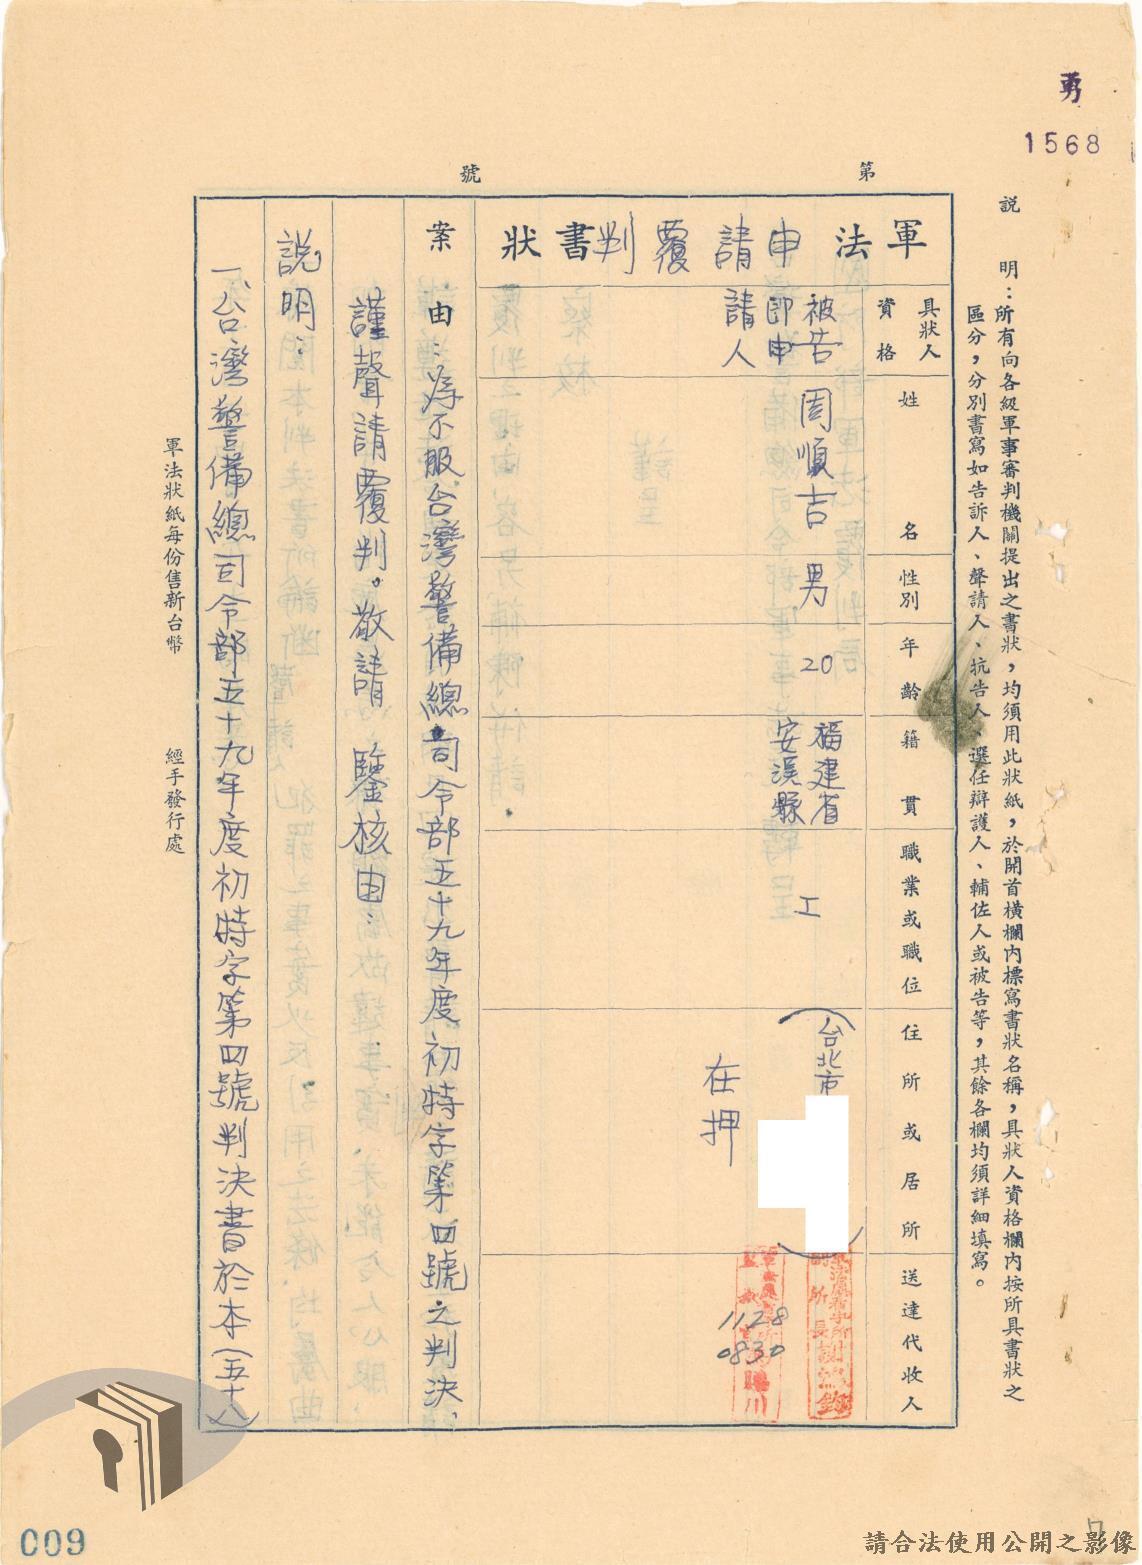 勇
1568
第　　號
說　明：所有向各級軍事審判機關提出之書狀，均須用此狀紙，於開首橫欄內標寫書狀名稱，具狀人資格欄內按所具書狀之
區分，分別書寫如告訴人、聲請人、抗告人、選任辯護人、輔佐人或被告等，其餘各欄均須詳細填寫。
軍法申請覆判書狀
具狀人資格
姓名
性別
年齡
籍貫
職業或職位
住所或居所
送達代收人
被告即申請人
周順吉
男
20
福建省安溪縣
工
(台北市
)
在押
副所長謝
1128
0830
川
案由：為不服台灣警備總司令部五十九年度初特字第四號之判決、
謹聲請覆判。敬請　鑒核由：
說明：
一、台灣警備總司令部五十九年度初特字第四號判決書於本(五十八)
軍法狀紙每份售新台幣　　經手發行處
009
請合法使用公開之影像